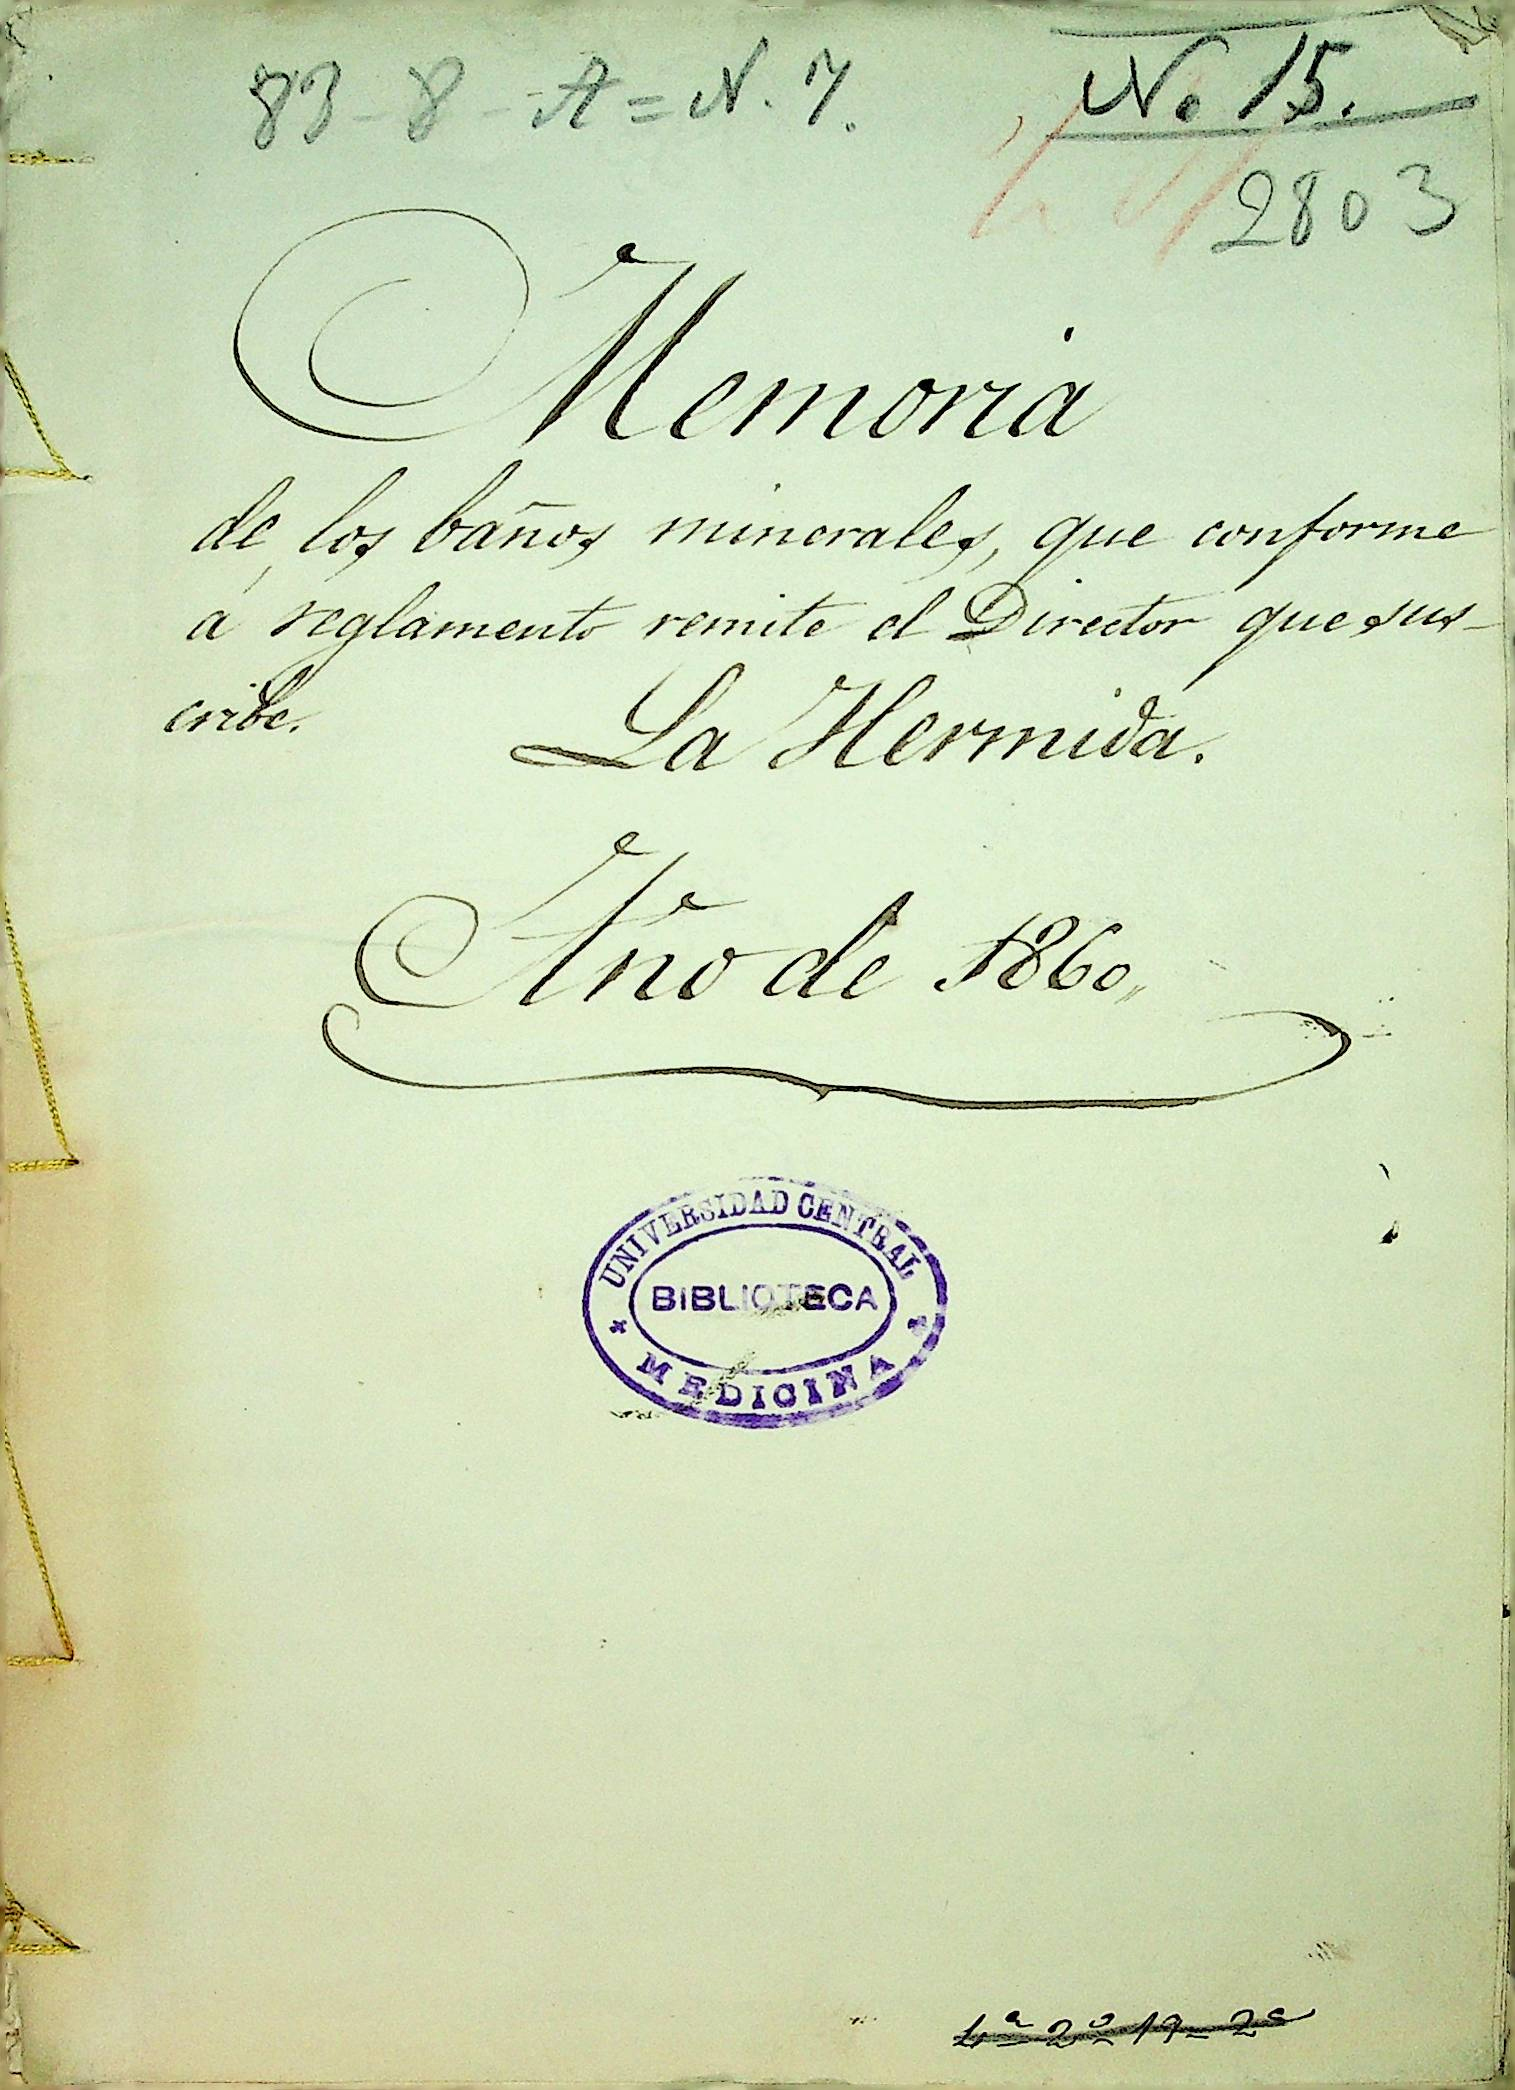 83-8-A=N.7.
No 15.
2803
Memoria
de los baños minerales, que conforme
á reglamento remite el Director que sus-
cribe.
La Hermida.
Año de 1860,,
UNIVERSIDAD CENTRAL
BIBLIOTECA
MEDICINA
4ª 2º 17-2ª